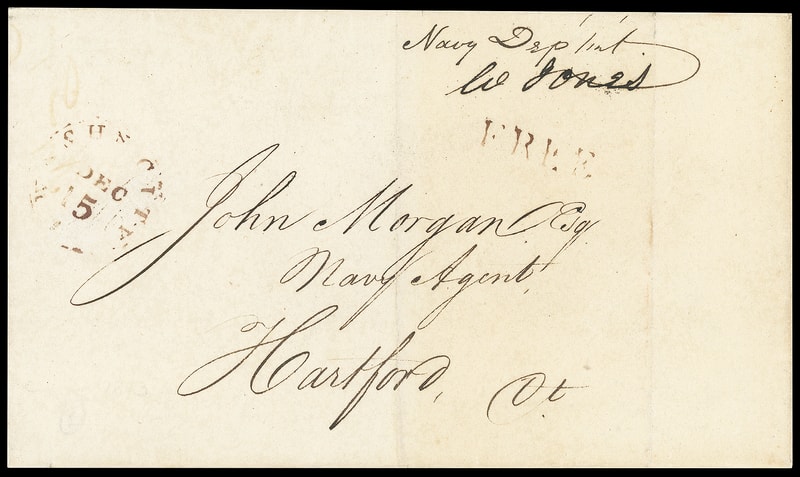 Navy Dep'mt
W Jones
FREE
WASHN CITY
DEC
15
John Morgan Esq
Navy Agent
Hartford, Ct.